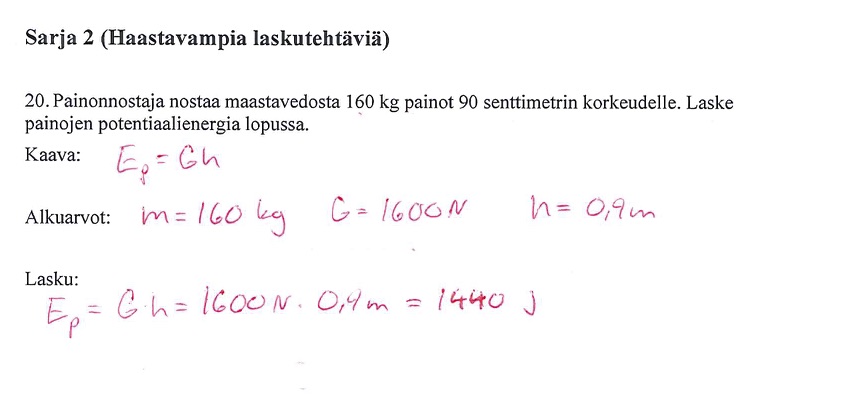 Sarja 2 (Haastavampia laskutehtäviä)
20. Painonnostaja nostaa maastavedosta 160 kg painot 90 senttimetrin korkeudelle. Laske
painojen potentiaalienergia lopussa.
Kaava: Ep = Gh
Alkuarvot: m = 160 kg G = 1600N h = 0,9m
Lasku:
Ep = G·h = 1600N · 0,9m = 1440 J